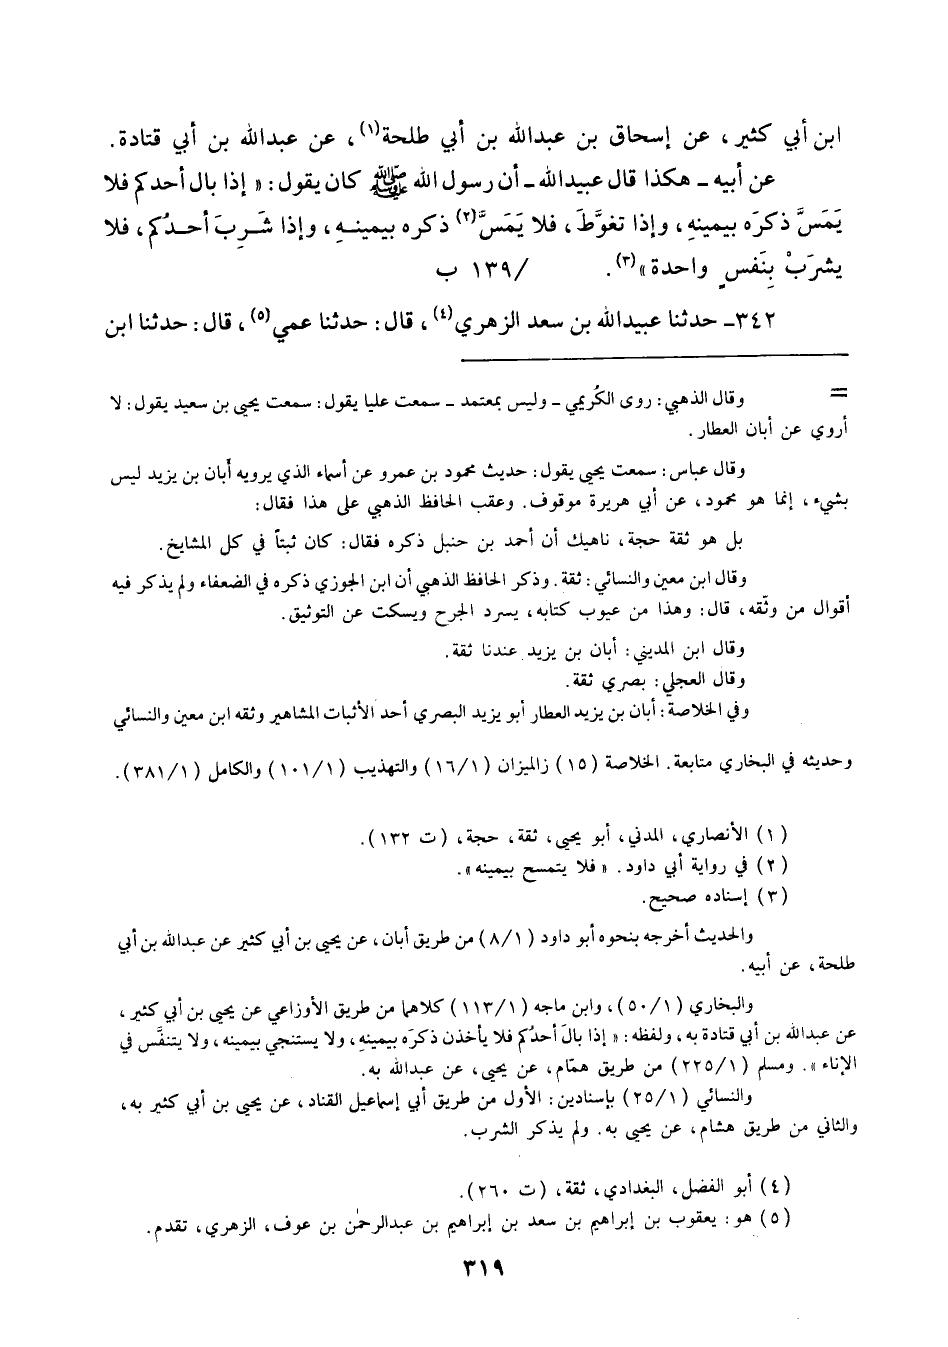 ابن أبي كثير، عن إسحاق بن عبدالله بن أبي طلحة(١)، عن عبدالله بن أبي قتادة.
عن أبيه ـ هكذا قال عبيدالله ـ أن رسول الله ﷺ كان يقول: « إذا بال أحدكم فلا
يَمَسَّ ذكرَه بيمينهِ، وإذا تغوَّطَ، فلا يَمَسَّ(٢) ذكره بيمينـهِ، وإذا شَـرِبَ أحـدُكم، فلا
يشرَبْ بِنَفَسٍ واحدة»(٣). /١٣٩ ب
٣٤٢ـ حدثنا عبيدالله بن سعد الزهري(٤)، قال: حدثنا عمي(٥)، قال: حدثنا ابن
= وقال الذهبي: روى الكُريمي ـ وليس بمعتمد ـ سمعت عليا يقول: سمعت يحيى بن سعيد يقول: لا
أروي عن أبان العطار.
وقال عباس: سمعت يحيى يقول: حديث محمود بن عمرو عن أسماء الذي يرويه أبان بن يزيد ليس
بشيء، إنما هو محمود، عن أبي هريرة موقوف. وعقب الحافظ الذهبي على هذا فقال:
بل هو ثقة حجة، ناهيك أن أحمد بن حنبل ذكره فقال: كان ثبتاً في كل المشايخ.
وقال ابن معين والنسائي: ثقة. وذكر الحافظ الذهبي أن ابن الجوزي ذكره في الضعفاء ولم يذكر فيه
أقوال من وثّقه، قال: وهذا من عيوب كتابه، يسرد الجرح ويسكت عن التوثيق.
وقال ابن المديني: أبان بن يزيد عندنا ثقة.
وقال العجلي: بصري ثقة.
وفي الخلاصة: أبان بن يزيد العطار أبو يزيد البصري أحد الأثبات المشاهير وثقه ابن معين والنسائي
وحديثه في البخاري متابعة. الخلاصة (١٥) زالميزان (١٦/١) والتهذيب (١٠١/١) والكامل (٣٨١/١).
(١) الأنصاري، المدني، أبو يحيى، ثقة، حجة، (ت ١٣٢).
(٢) في رواية أبي داود. « فلا يتمسح بيمينه».
(٣) إسناده صحيح.
والحديث أخرجه بنحوه أبو داود (٨/١) من طريق أبان، عن يحيى بن أبي كثير عن عبدالله بن أبي
طلحة، عن أبيه.
والبخاري (٥٠/١)، وابن ماجه (١١٣/١) كلاهما من طريق الأوزاعي عن يحيى بن أبي كثير،
عن عبدالله بن أبي قتادة به، ولفظه: « إذا بالَ أحدُكم فلا يأخذن ذكرَه بيمينهِ، ولا يستنجي بيمينه، ولا يتنفَّس في
الإناء». ومسلم (٢٢٥/١) من طريق همّام، عن يحيى، عن عبدالله به.
والنسائي (٢٥/١) بإسنادين: الأول من طريق أبي إسماعيل القناد، عن يحيى بن أبي كثير به،
والثاني من طريق هشام، عن يحيى به. ولم يذكر الشرب.
(٤) أبو الفضل، البغدادي، ثقة، (ت ٢٦٠).
(٥) هو: يعقوب بن إبراهيم بن سعد بن إبراهيم بن عبدالرحمٰن بن عوف، الزهري، تقدم.
٣١٩